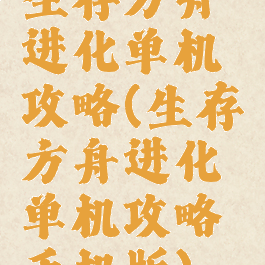 生存方舟
进化单机
攻略(生存
方舟进化
单机攻略
手机版)